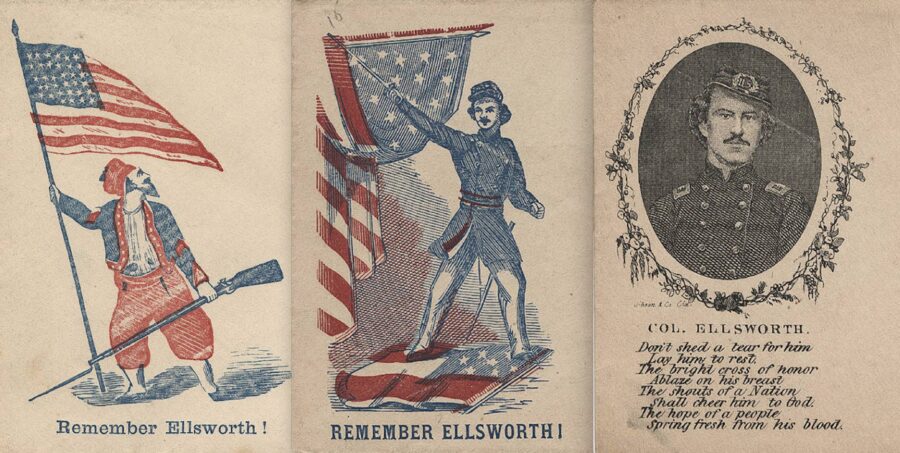 Remember Ellsworth!
16
REMEMBER ELLSWORTH!
COL. ELLSWORTH.
Don't shed a tear for him
Lay him to rest.
The bright cross of honor
Ablaze on his breast
The shouts of a Nation
Shall cheer him to God.
The hope of a people
Spring fresh from his blood.